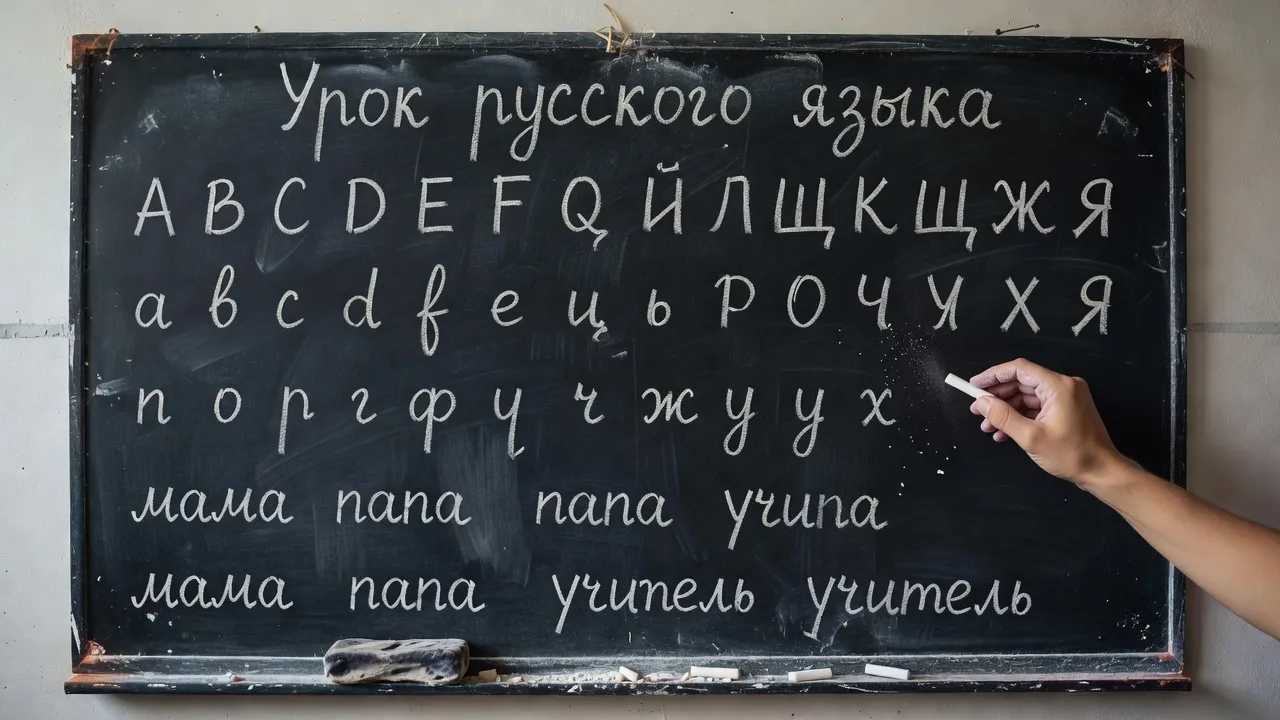 Урок русского языка
A B C D E F Q Й Л Щ К Щ Ж Я
a в c d f e ц ь Р О Ч У Х Я
п о р г ф ц ч ж у у х
мама папа папа учипа
мама папа учипель учитель